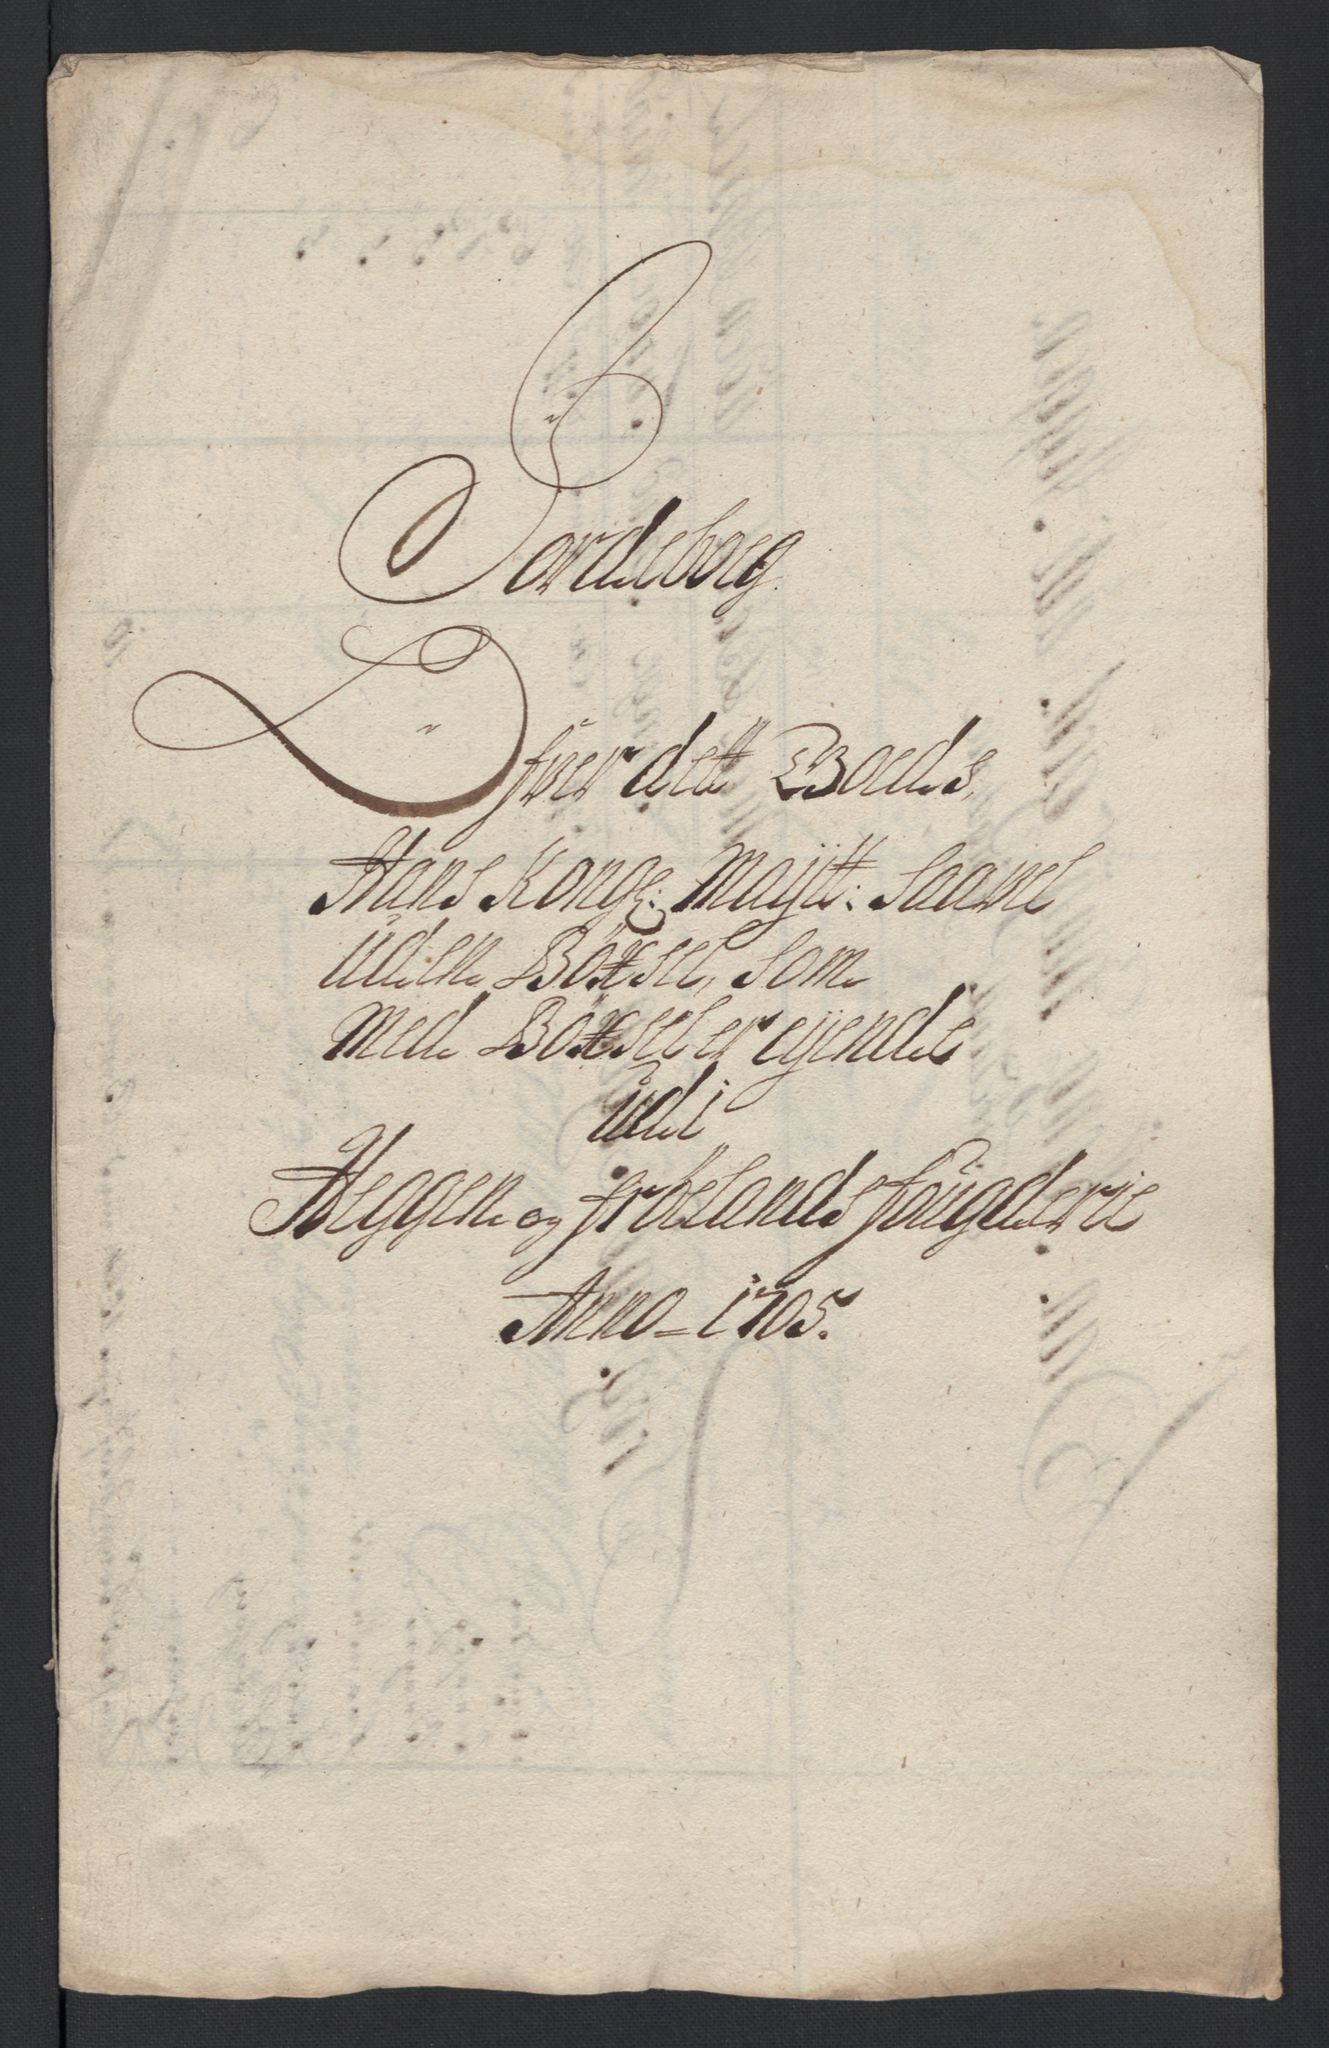 Jordeboeg
Ofver dett Goeds,
Hans Konge: Maytt: Saavel
uden Böxsel, Som
med Böxsel er eyende
udi
Heggen og frölands fougderie
Anno=1705.